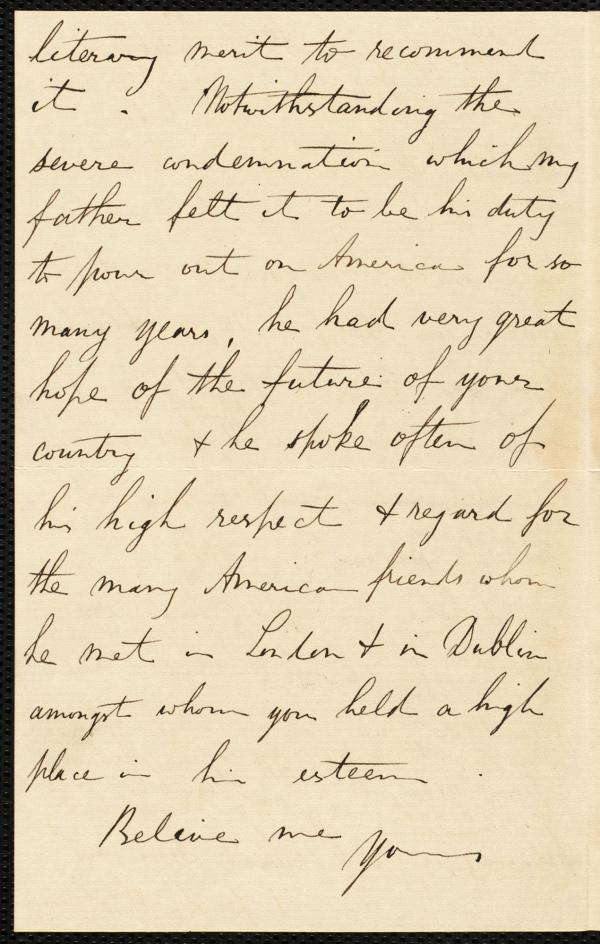 literary merit to recommend
it . Notwithstanding the
severe condemnation which my
father felt it to be his duty
to pour out on America for so
many years, he had very great
hope of the future of your
country & he spoke often of
his high respect & regard for
the many American friends whom
he met in London & in Dublin
amongst whom you held a high
place in his esteem .
Believe me yours